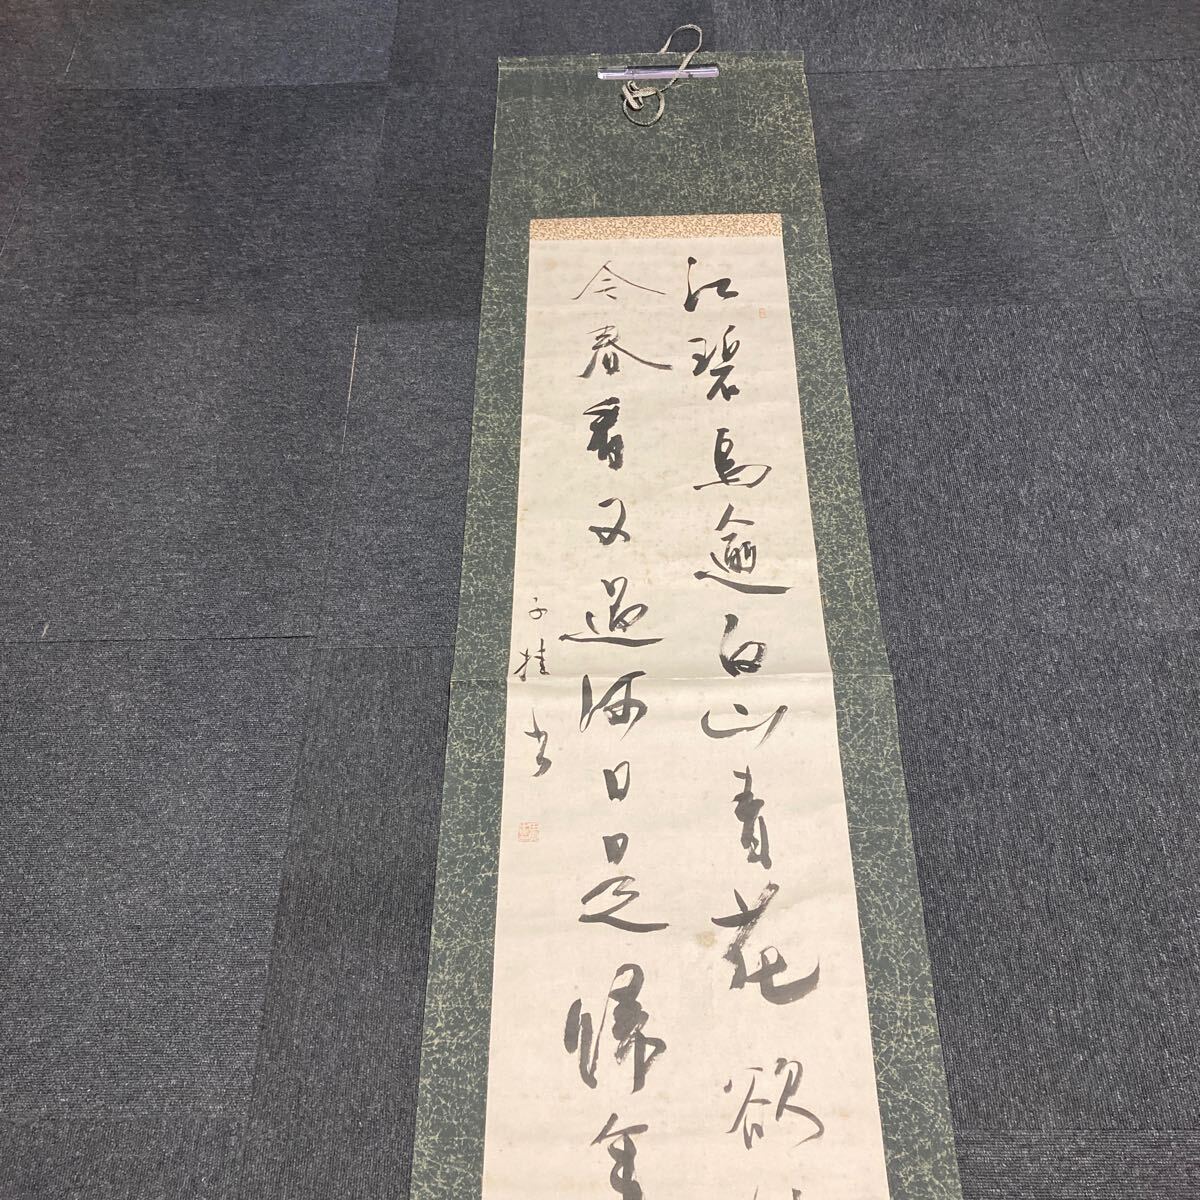 江碧鳥逾白山青花欲
今春看又過何日是歸年
子桂書